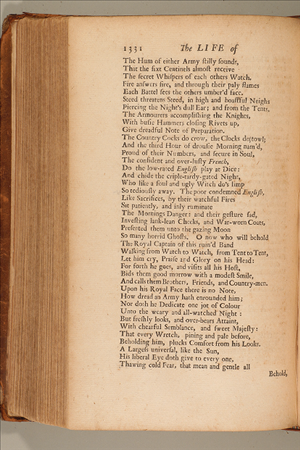 1331 The LIFE of
The Hum of either Army stilly sounds,
That the fixt Centinels almost receive
The secret Whispers of each others Watch.
Fire answers fire, and through their paly flames
Each Battel sees the others umber'd face.
Steed threatens Steed, in high and boastful Neighs
Piercing the Night's dull Ear; and from the Tents,
The Armourers accomplishing the Knights,
With busie Hammers closing Rivets up,
Give dreadful Note of Preparation.
The Country Cocks do crow, the Clocks do towl;
And the third Hour of drousie Morning nam'd,
Proud of their Numbers, and secure in Soul,
The confident and over-lusty French,
Do the low-rated English play at Dice:
And chide the criple-tardy-gated Night,
Who like a foul and ugly Witch do's limp
So tediously away. The poor condemned English,
Like Sacrifices, by their watchful Fires
Sit patiently, and inly ruminate
The Mornings Danger: and their gesture sad,
Investing lank-lean Cheeks, and War-worn Coats,
Presented them unto the gazing Moon
So many horrid Ghosts. O now who will behold
The Royal Captain of this ruin'd Band
Walking from Watch to Watch, from Tent to Tent,
Let him cry, Praise and Glory on his Head:
For forth he goes, and visits all his Host,
Bids them good morrow with a modest Smile,
And calls them Brothers, Friends, and Country-men.
Upon his Royal Face there is no Note,
How dread an Army hath enrounded him;
Nor doth he Dedicate one jot of Colour
Unto the weary and all-watched Night:
But freshly looks, and over-bears Attaint,
With chearful Semblance, and sweet Majesty:
That every Wretch, pining and pale before,
Beholding him, plucks Comfort from his Looks.
A Largess universal, like the Sun,
His liberal Eye doth give to every one,
Thawing cold Fear, that mean and gentle all
Behold,